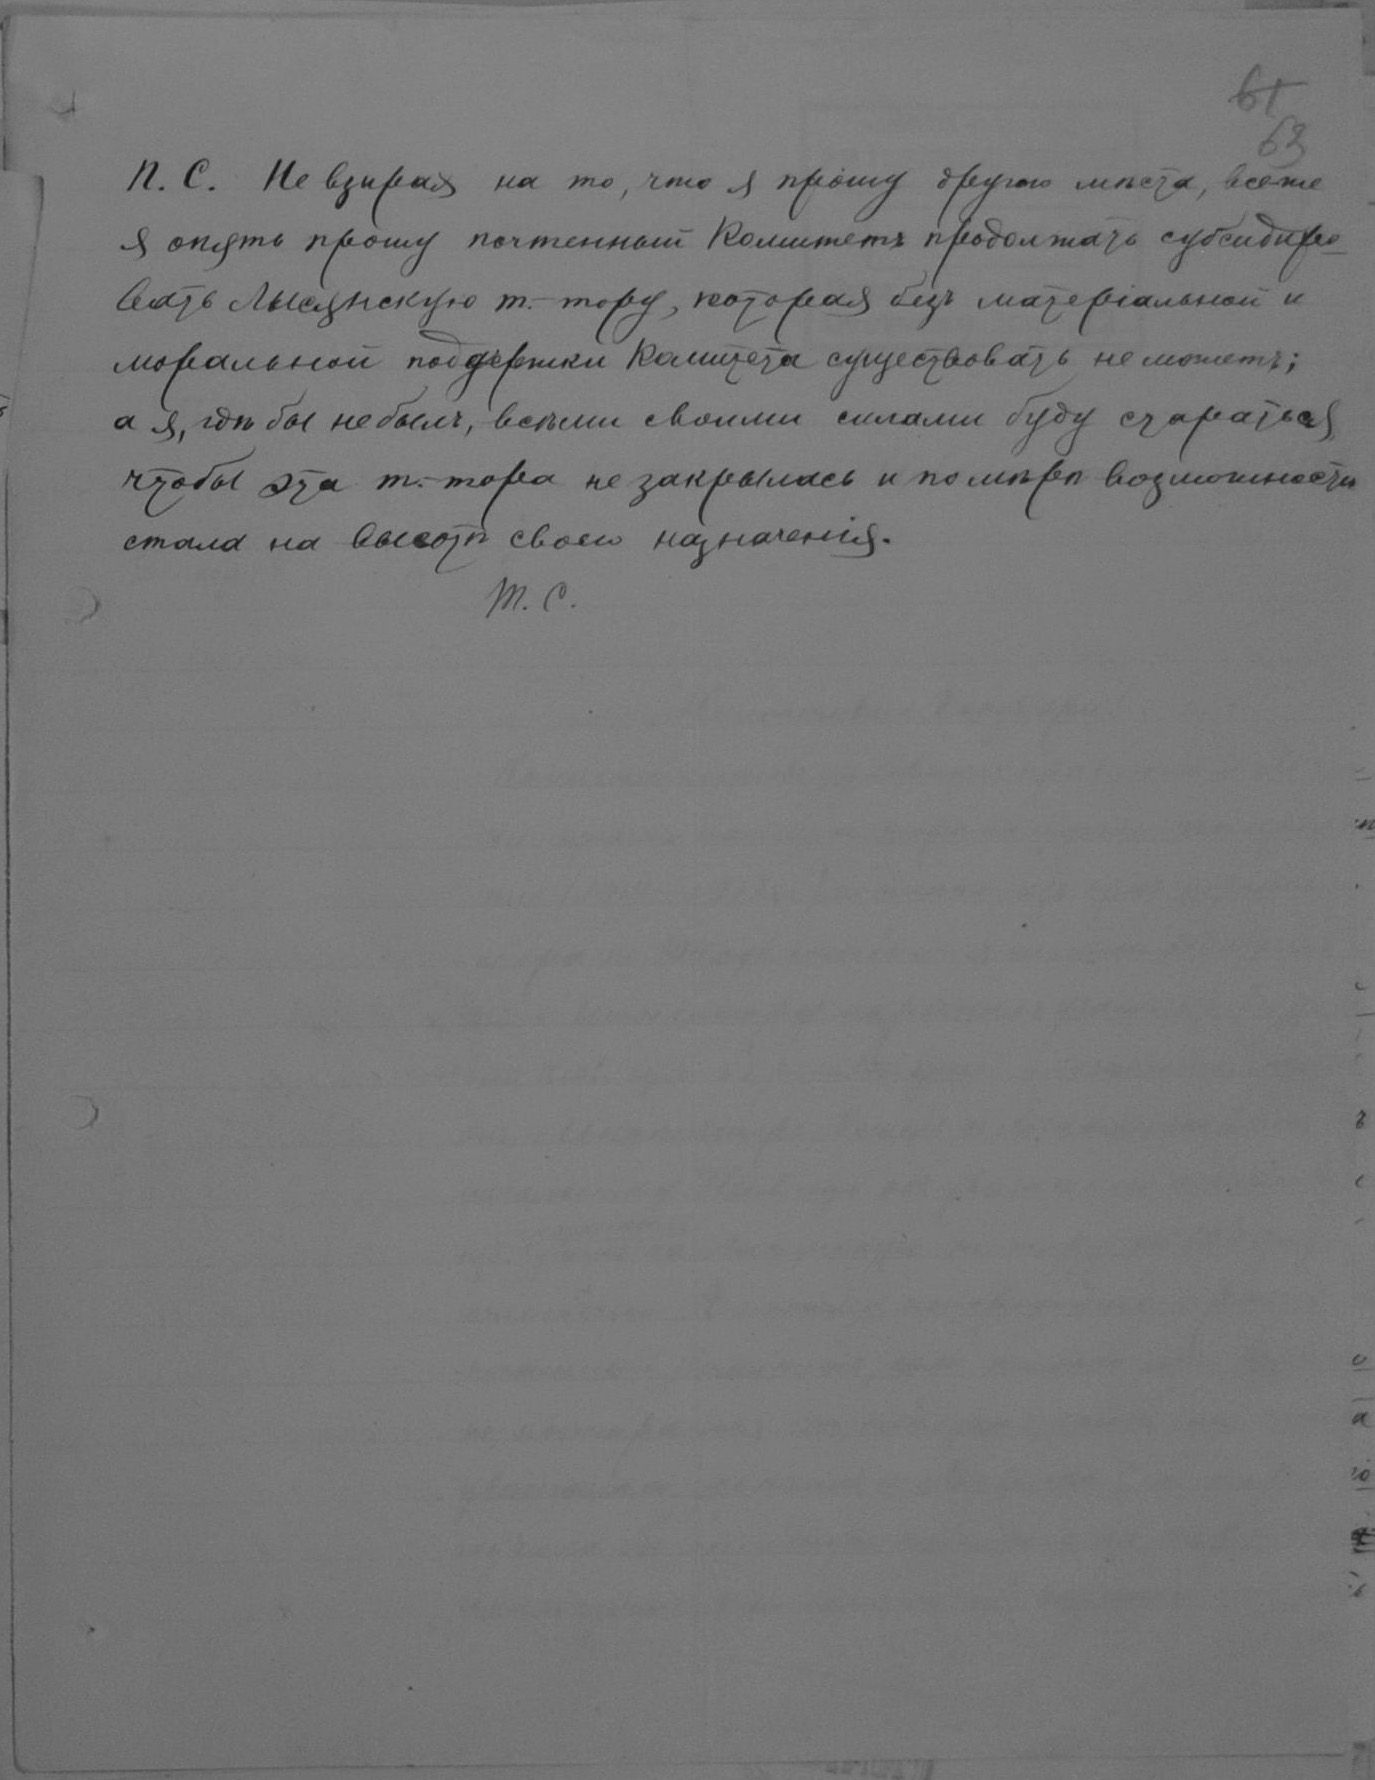 61
63
П. С. Не взирая на то, что я прошу другого мѣста, все-же
я опять прошу почтенный Комитетъ продолжать субсидиро-
вать Лысянскую т.-тору, которая безъ матеріальной и
моральной поддержки Комитета существовать не можетъ;
а я, гдѣ бы не былъ, всѣми своими силами буду стараться
чтобы эта т.-тора не закрылась и по мѣрѣ возможности
стала на высотѣ своего назначенія.
Т. С.